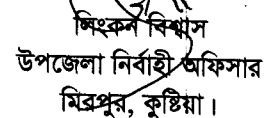 লিংকন বিশ্বাস
উপজেলা নির্বাহী অফিসার
মিরপুর, কুষ্টিয়া।